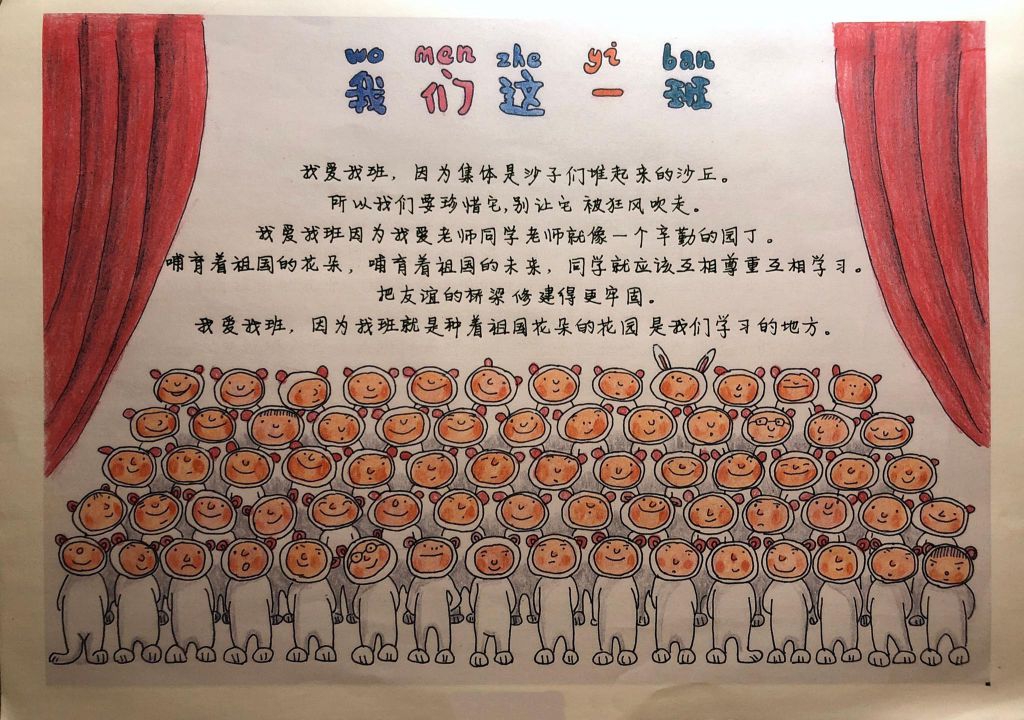 wo men zhe yi ban
我们这一班
我爱我班，因为集体是沙子们堆起来的沙丘。
所以我们要珍惜它，别让它被狂风吹走。
我爱我班因为我爱老师同学老师就像一个辛勤的园丁。
哺育着祖国的花朵，哺育着祖国的未来，同学就应该互相尊重互相学习。
把友谊的桥梁修建得更牢固。
我爱我班，因为我班就是种着祖国花朵的花园是我们学习的地方。